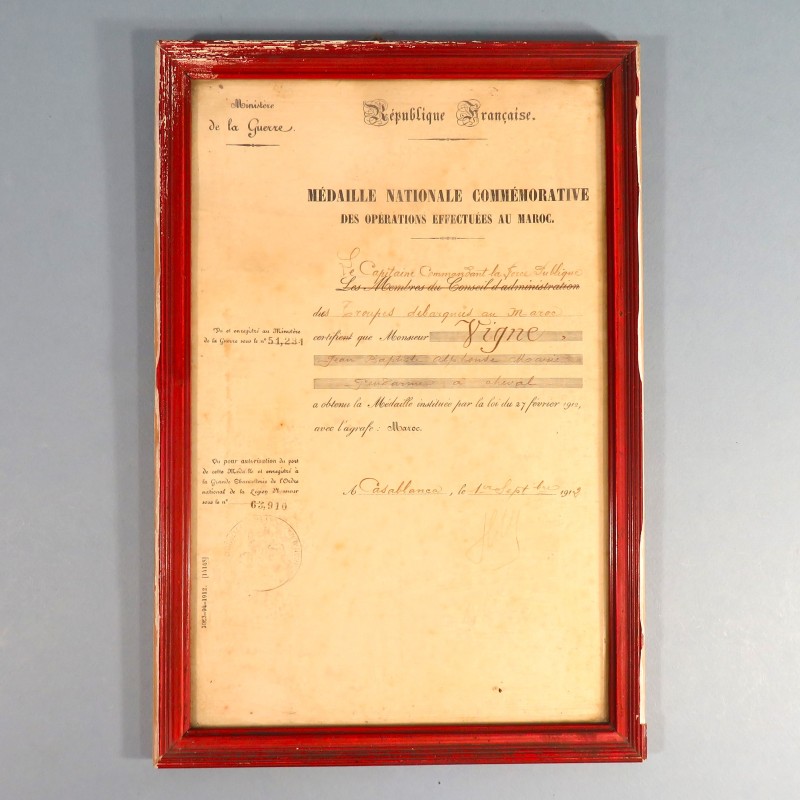 Ministère
de la Guerre.
République Française.
MÉDAILLE NATIONALE COMMÉMORATIVE
DES OPÉRATIONS EFFECTUÉES AU MAROC.
Le Capitaine Commandant la Force Publique
Les Membres du Conseil d'administration
des Troupes débarquées au Maroc
certifient que Monsieur Vigne,
Jean Baptiste Alphonse
Gendarme à cheval
a obtenu la Médaille instituée par la loi du 27 février 1912,
avec l'agrafe: Maroc.
A Casablanca, le 1er Septbre 1912
Vu et enregistré au Ministère
de la Guerre sous le n° 51,234
Vu pour autorisation du port
de cette Médaille et enregistré à
la Grande Chancellerie de l'Ordre
national de la Légion d'Honneur
sous le n° 63,910